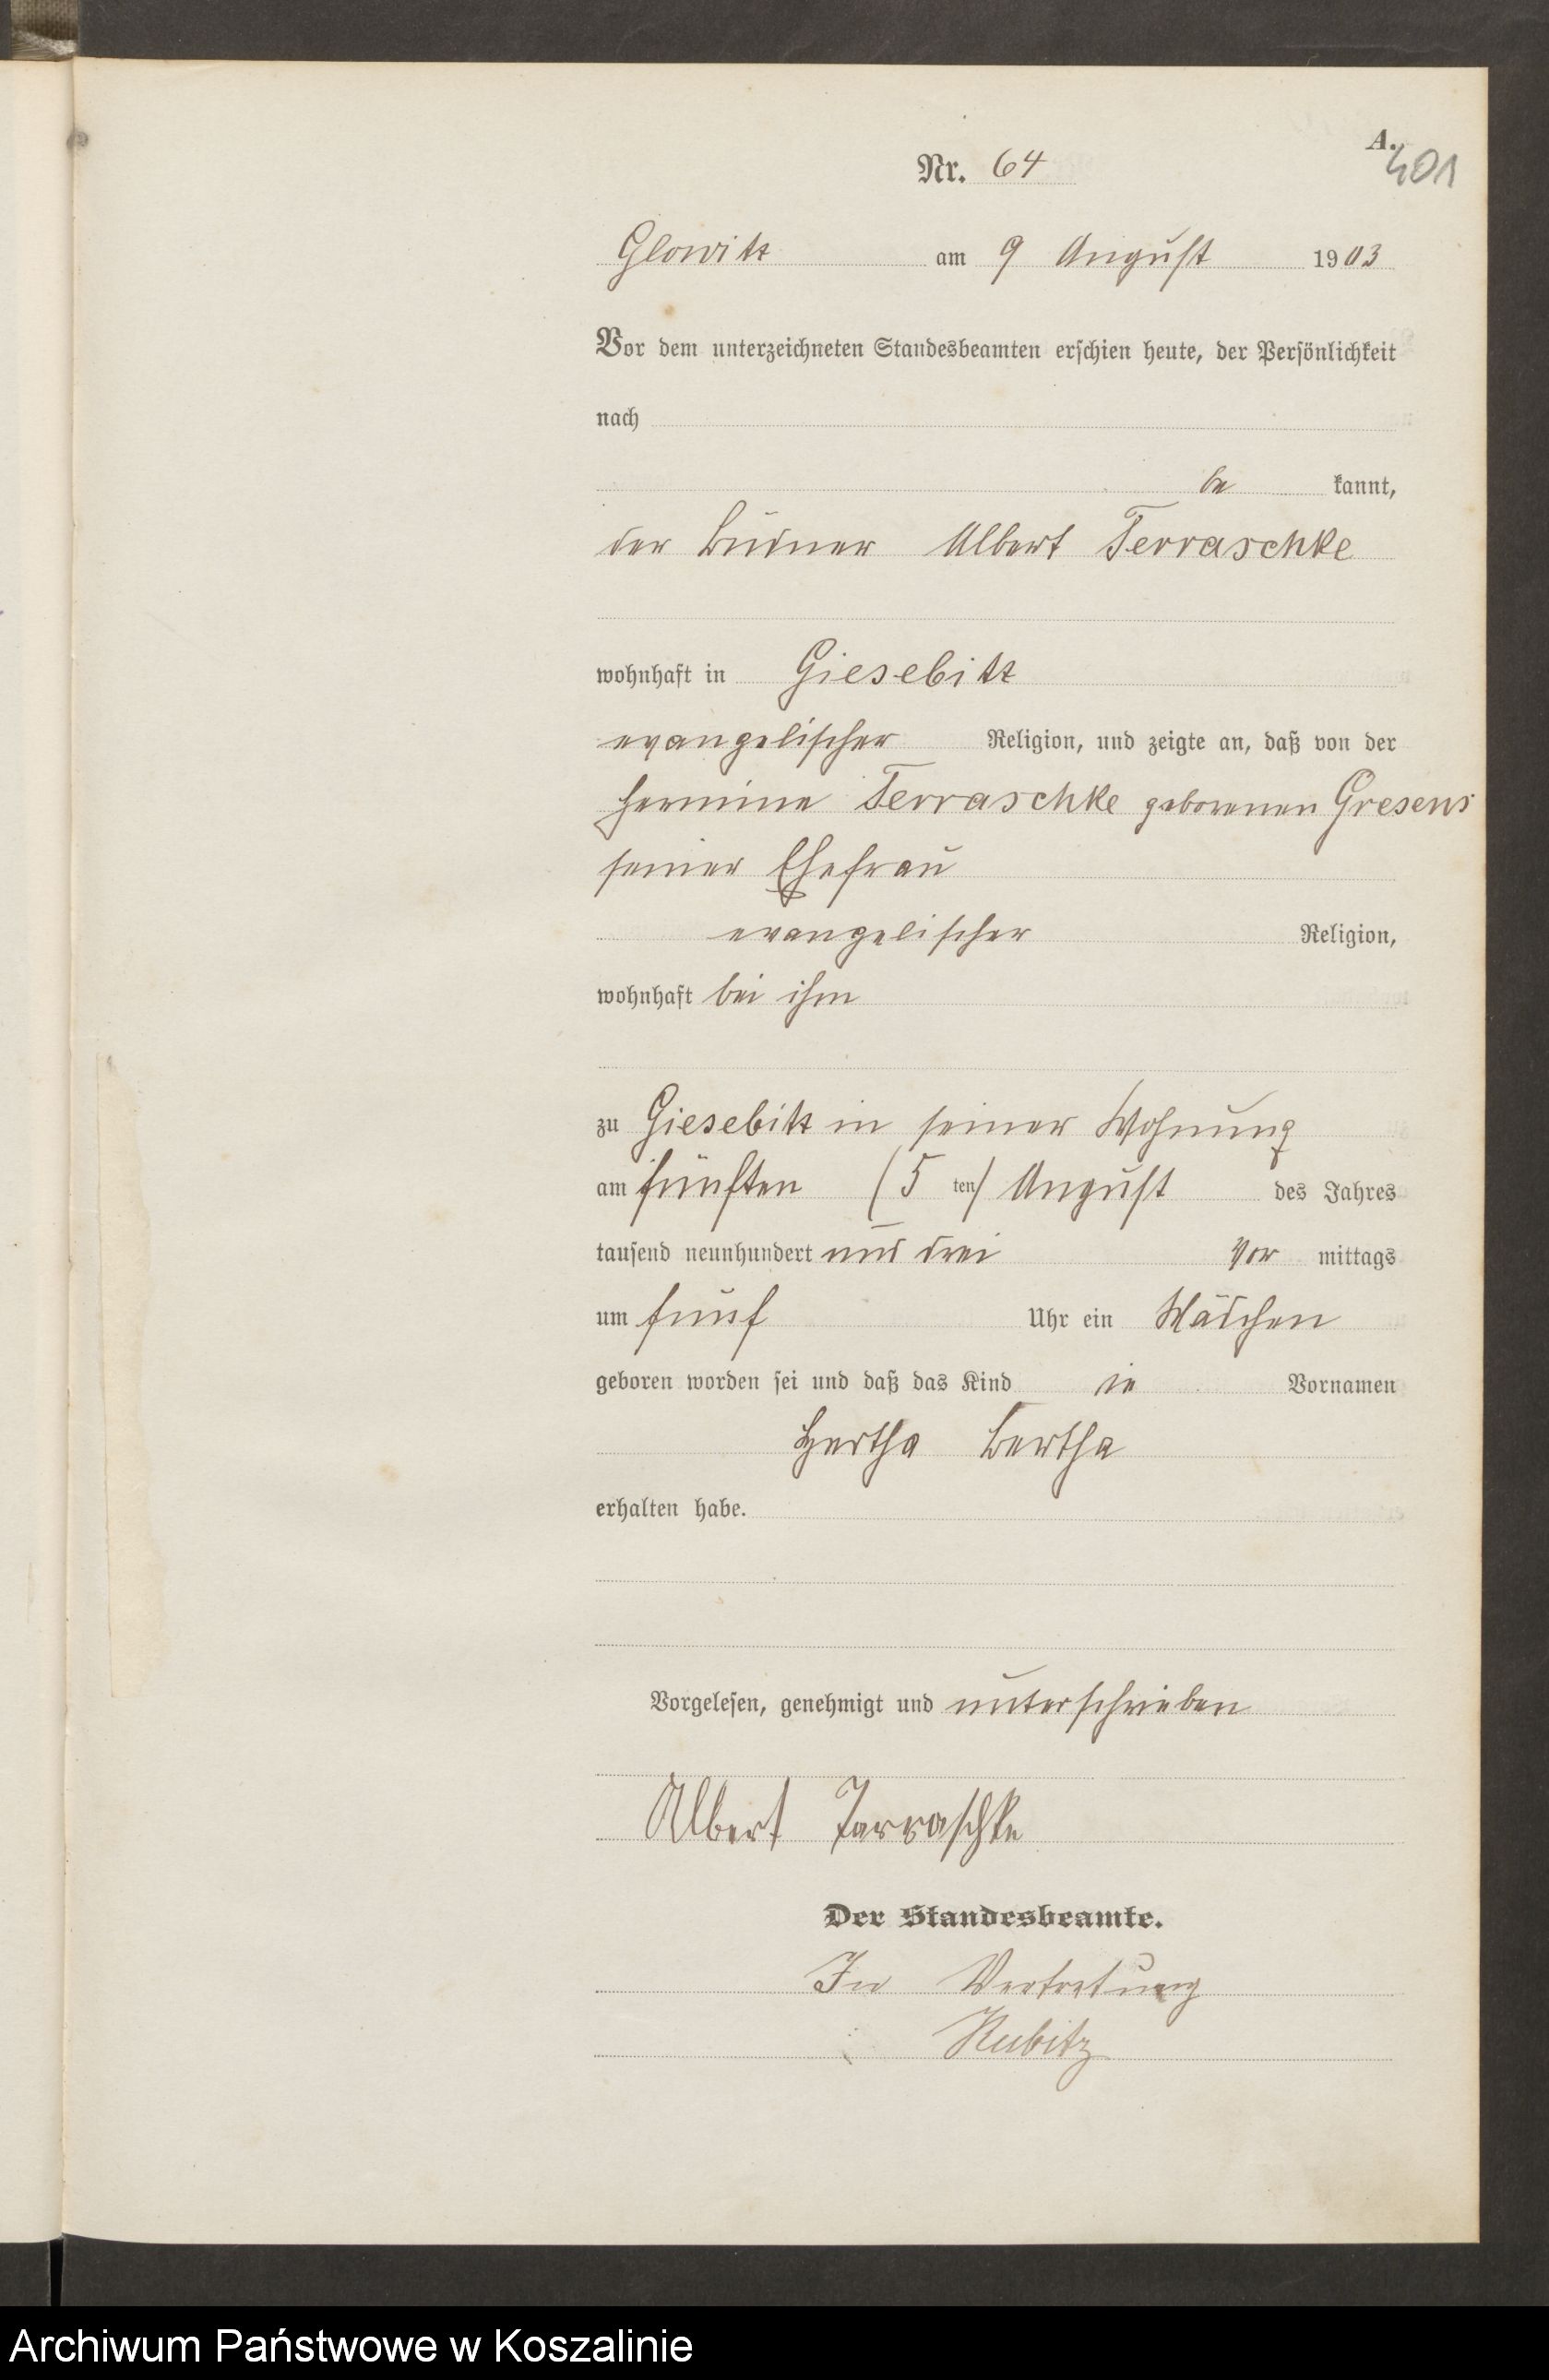 A.
401
Nr. 64
Glowitz am 9 August 1903
Vor dem unterzeichneten Standesbeamten erschien heute, der Persönlichkeit
nach
be kannt,
der Büdner Albert Terraschke
wohnhaft in Giesebitz
evangelischer Religion, und zeigte an, daß von der
Hermine Terraschke geborenen Gresens
seiner Ehefrau
evangelischer Religion,
wohnhaft bei ihm
zu Giesebitz in seiner Wohnung
am fünften (5 ten) August des Jahres
tausend neunhundert und drei Vor mittags
um fünf Uhr ein Mädchen
geboren worden sei und daß das Kind die Vornamen
Hertha Bertha
erhalten habe.
Vorgelesen, genehmigt und unterschrieben
Albert Tarraschke
Der Standesbeamte.
In Vertretung
Kubitz
Archiwum Państwowe w Koszalinie